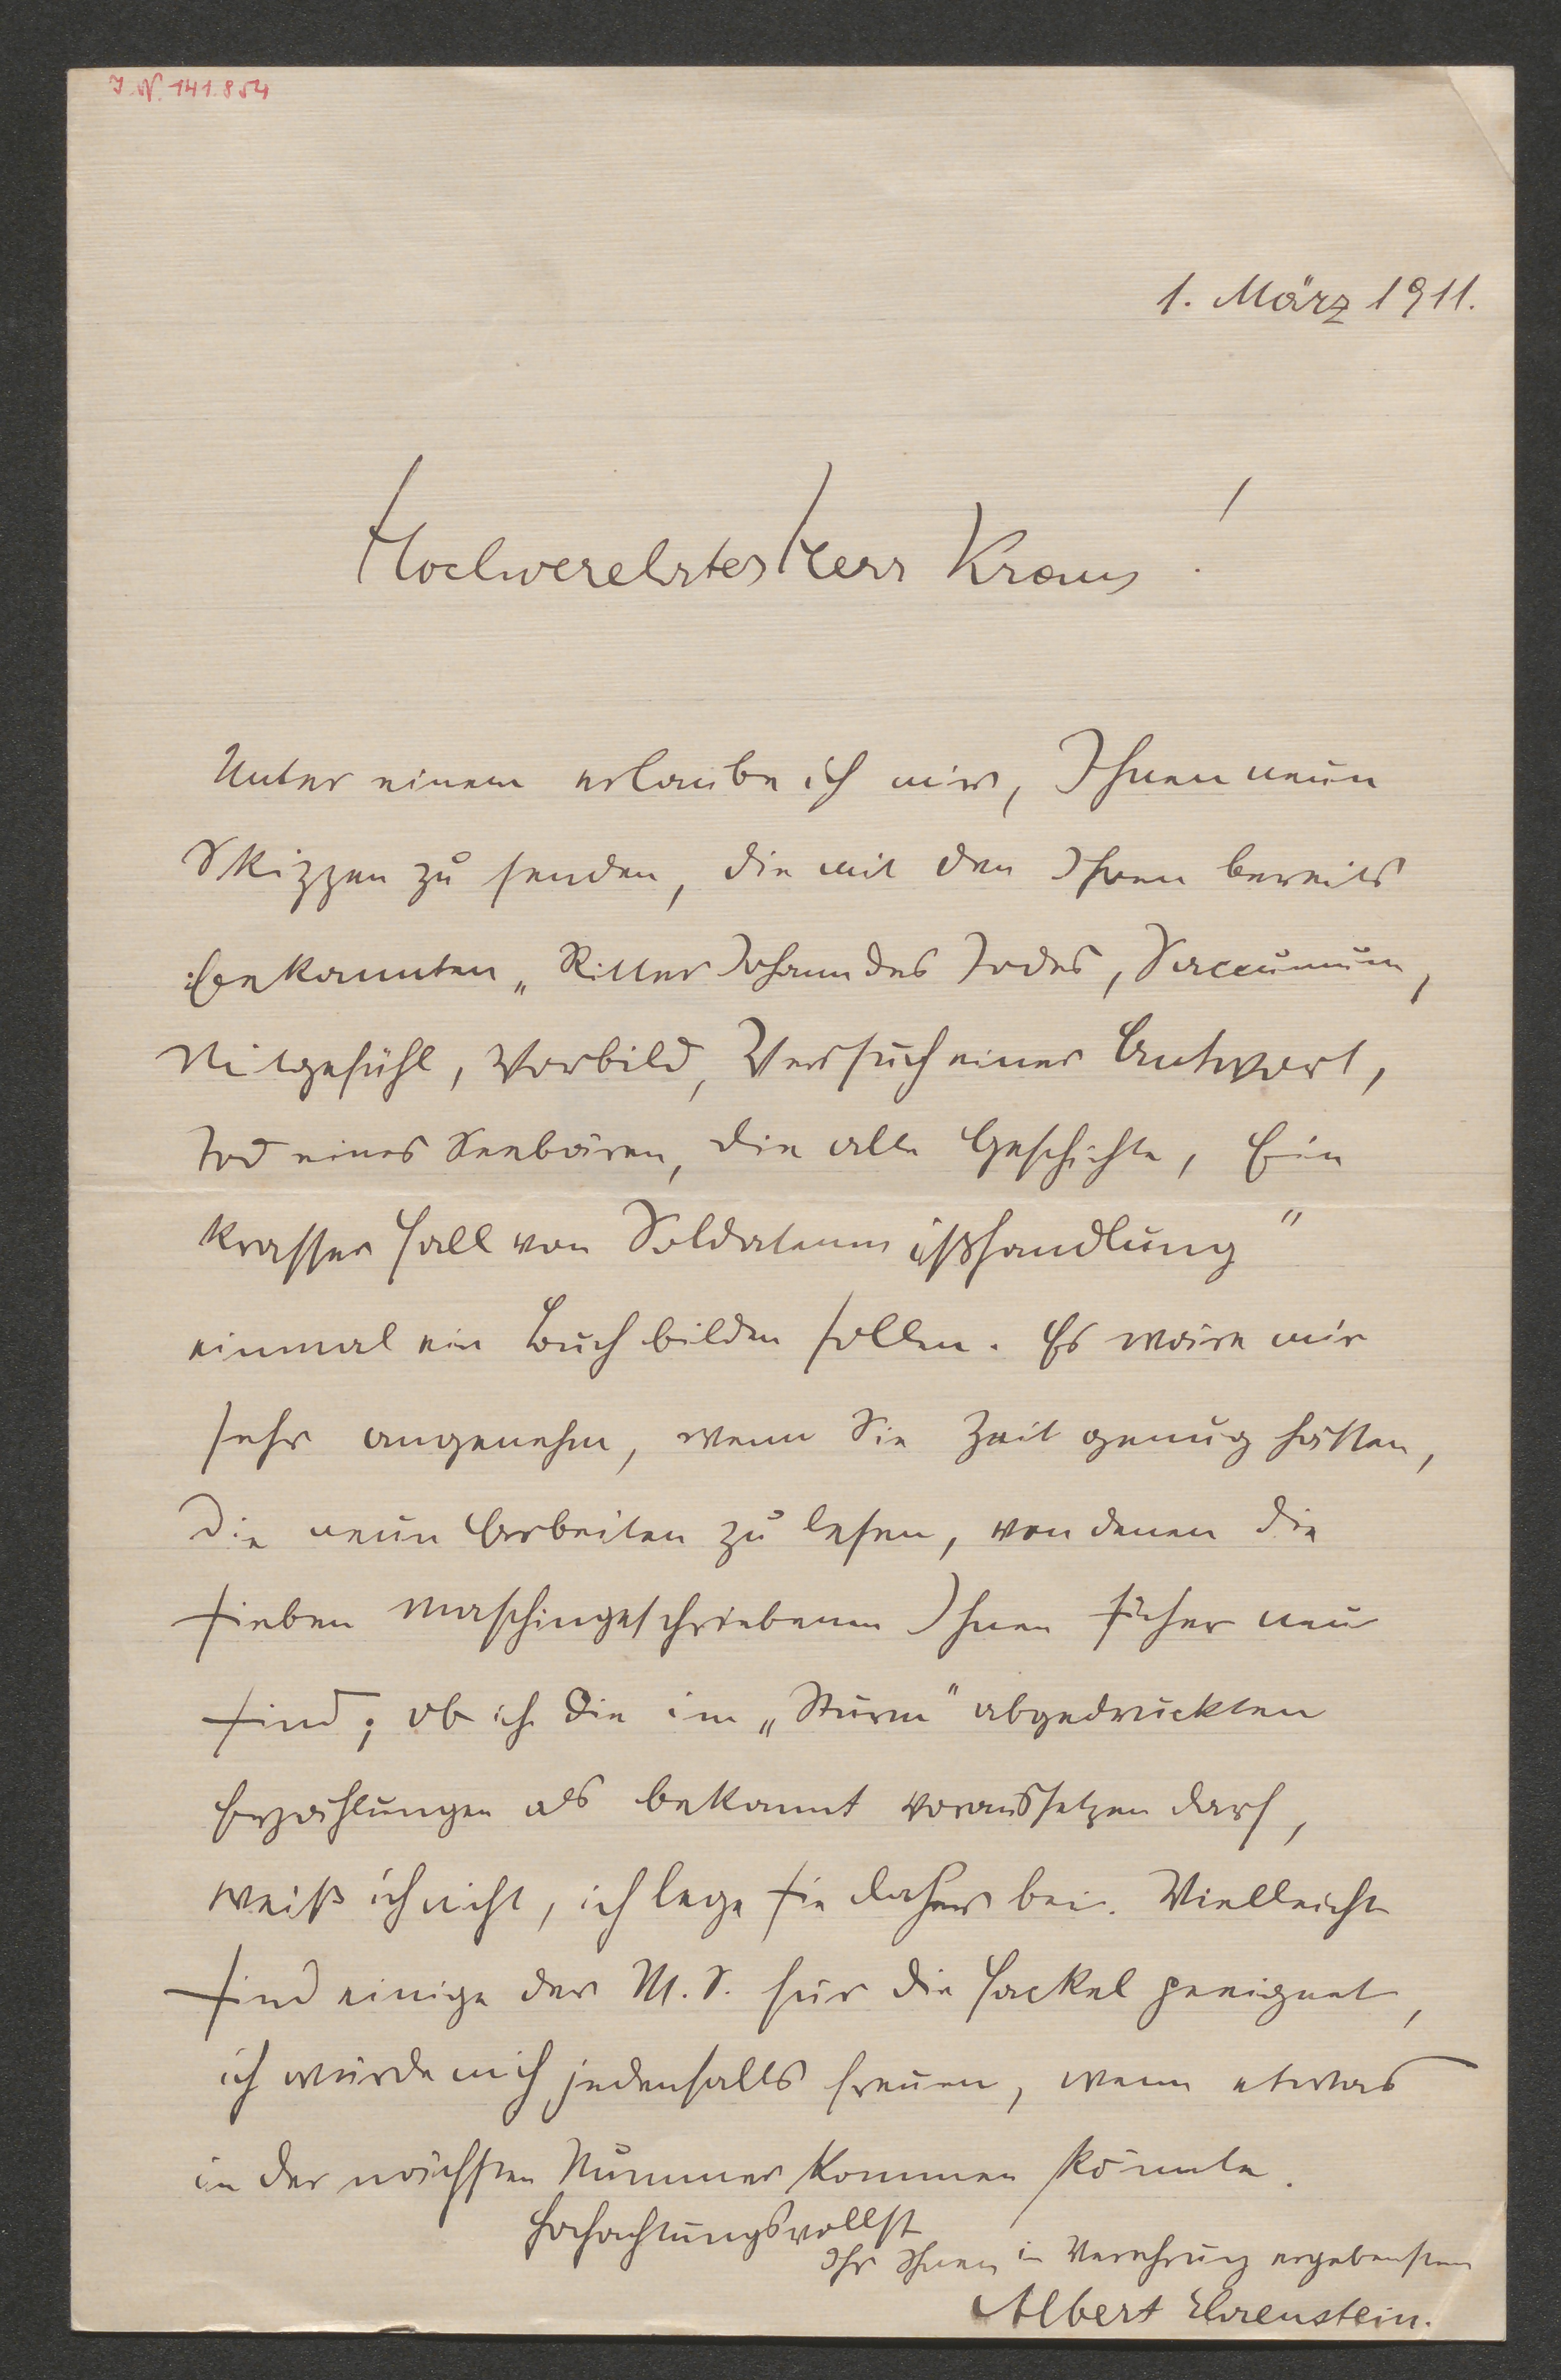 I. N. 141.854
1. März 1911.
Hochverehrter Herr Kraus!
Unter einem erlaube ich mir, Ihnen neun
Skizzen zu senden, die mit den Ihnen bereits
bekannten „Ritter Johann des Todes, Saccumum,
Mitgefühl, Vorbild, Versuch einer Antwort,
Tod eines Seebären, die alte Geschichte, Ein
krasser Fall von Soldatenmisshandlung"
einmal ein Buch bilden sollen. Es wäre mir
sehr angenehm, wenn Sie Zeit genug hätten,
die neun Arbeiten zu lesen, von denen die
sieben maschingeschriebenen Ihnen sicher neu
sind; ob ich die im „Sturm" abgedruckten
Erzählungen als bekannt voraussetzen darf,
weiß ich nicht, ich lege sie daher bei. Vielleicht
sind einige der M. S. für die Fackel geeignet,
ich würde mich jedenfalls freuen, wenn etwas
in der nächsten Nummer kommen könnte.
Hochachtungsvollst
Ihr Ihnen in Verehrung ergebenster
Albert Ehrenstein.